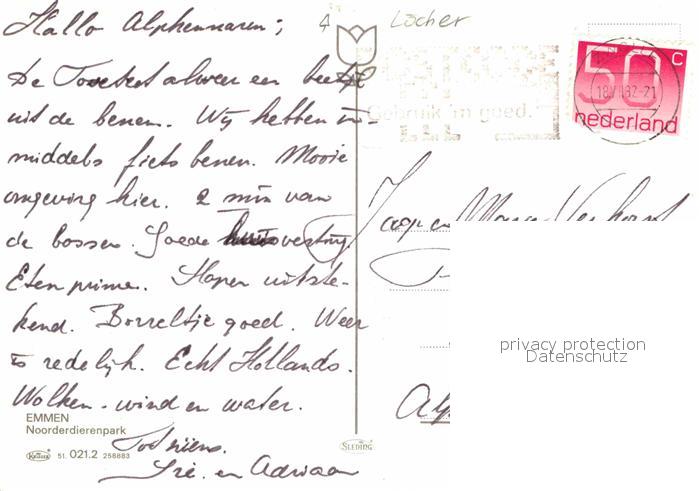 Hallo Alphennaren;
De Toetert alweer een beetje
uit de benen. Wij hebben in-
middels fiets benen. Mooie
omgeving hier. 2 min van
de bossen. Goede huisvesting.
Eten prima. Slapen uitste-
kend. Borreltje goed. Weer
is redelijk. Echt Hollands.
Wolken - wind en water.
Tot ziens.
en Adriaan
EMMEN
Noorderdierenpark
51. 021.2 258883
SLEDING
4 Locher
POSTCODE
Gebruik 'm goed.
50 C
nederland
Jaap en
privacy protection
Datenschutz